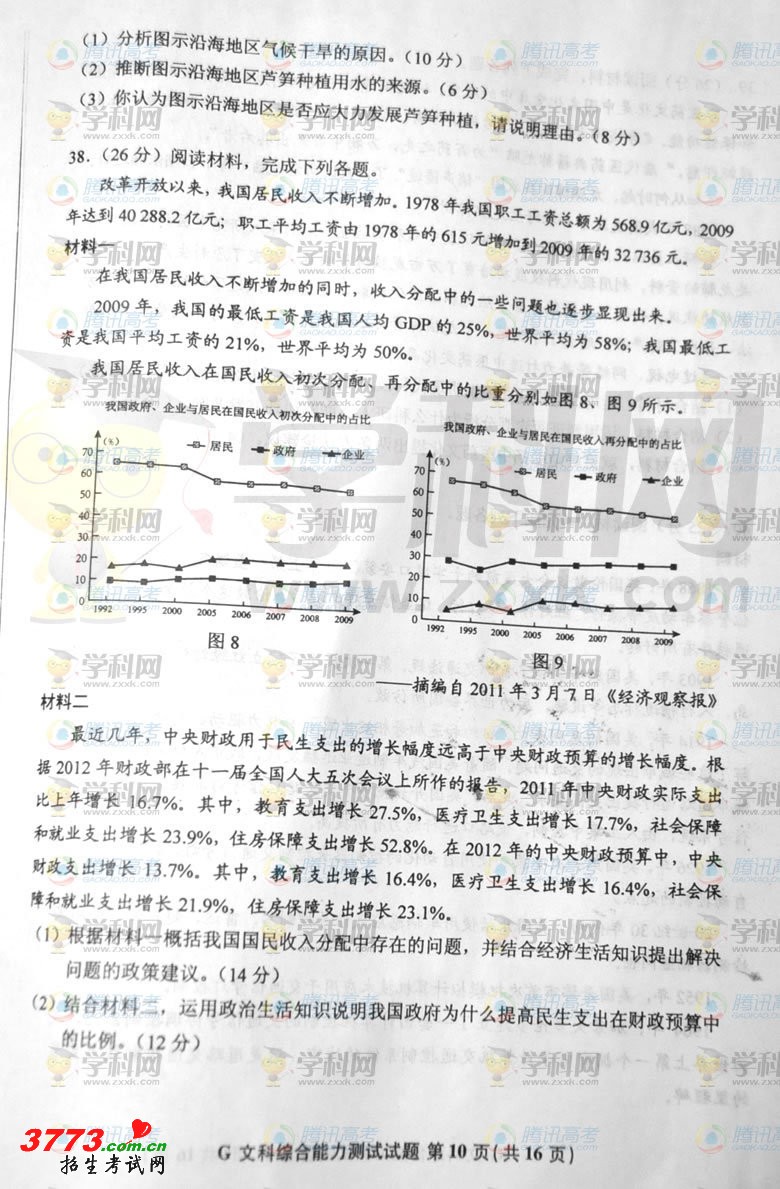 (1) 分析图示沿海地区气候干旱的原因。(10 分)
(2) 推断图示沿海地区芦笋种植用水的来源。(6 分)
(3) 你认为图示沿海地区是否应大力发展芦笋种植，请说明理由。(8 分)
38. (26 分) 阅读材料，完成下列各题。
改革开放以来，我国居民收入不断增加。1978 年我国职工工资总额为 568.9 亿元，2009
年达到 40 288.2 亿元；职工平均工资由 1978 年的 615 元增加到 2009 年的 32 736 元。
材料一
在我国居民收入不断增加的同时，收入分配中的一些问题也逐步显现出来。
2009 年，我国的最低工资是我国人均 GDP 的 25%，世界平均为 58%；我国最低工
资是我国平均工资的 21%，世界平均为 50%。
我国居民收入在国民收入初次分配、再分配中的比重分别如图 8、图 9 所示。
我国政府、企业与居民在国民收入初次分配中的占比
(%)
居民 政府 企业
70
60
50
40
30
20
10
0
1992 1995 2000 2005 2006 2007 2008 2009
图 8
我国政府、企业与居民在国民收入再分配中的占比
(%)
居民 政府 企业
70
60
50
40
30
20
10
0
1992 1995 2000 2005 2006 2007 2008 2009
图 9
——摘编自 2011 年 3 月 7 日《经济观察报》
材料二
最近几年，中央财政用于民生支出的增长幅度远高于中央财政预算的增长幅度。根
据 2012 年财政部在十一届全国人大五次会议上所作的报告，2011 年中央财政实际支出
比上年增长 16.7%。其中，教育支出增长 27.5%，医疗卫生支出增长 17.7%，社会保障
和就业支出增长 23.9%，住房保障支出增长 52.8%。在 2012 年的中央财政预算中，中央
财政支出增长 13.7%。其中，教育支出增长 16.4%，医疗卫生支出增长 16.4%，社会保
障和就业支出增长 21.9%，住房保障支出增长 23.1%。
(1) 根据材料一概括我国国民收入分配中存在的问题，并结合经济生活知识提出解决
问题的政策建议。(14 分)
(2) 结合材料二，运用政治生活知识说明我国政府为什么提高民生支出在财政预算中
的比例。(12 分)
G 文科综合能力测试试题 第 10 页(共 16 页)
3773.com.cn
招生考试网
学科网
www.zxxk.com
腾讯高考
GAOKAO.QQ.COM